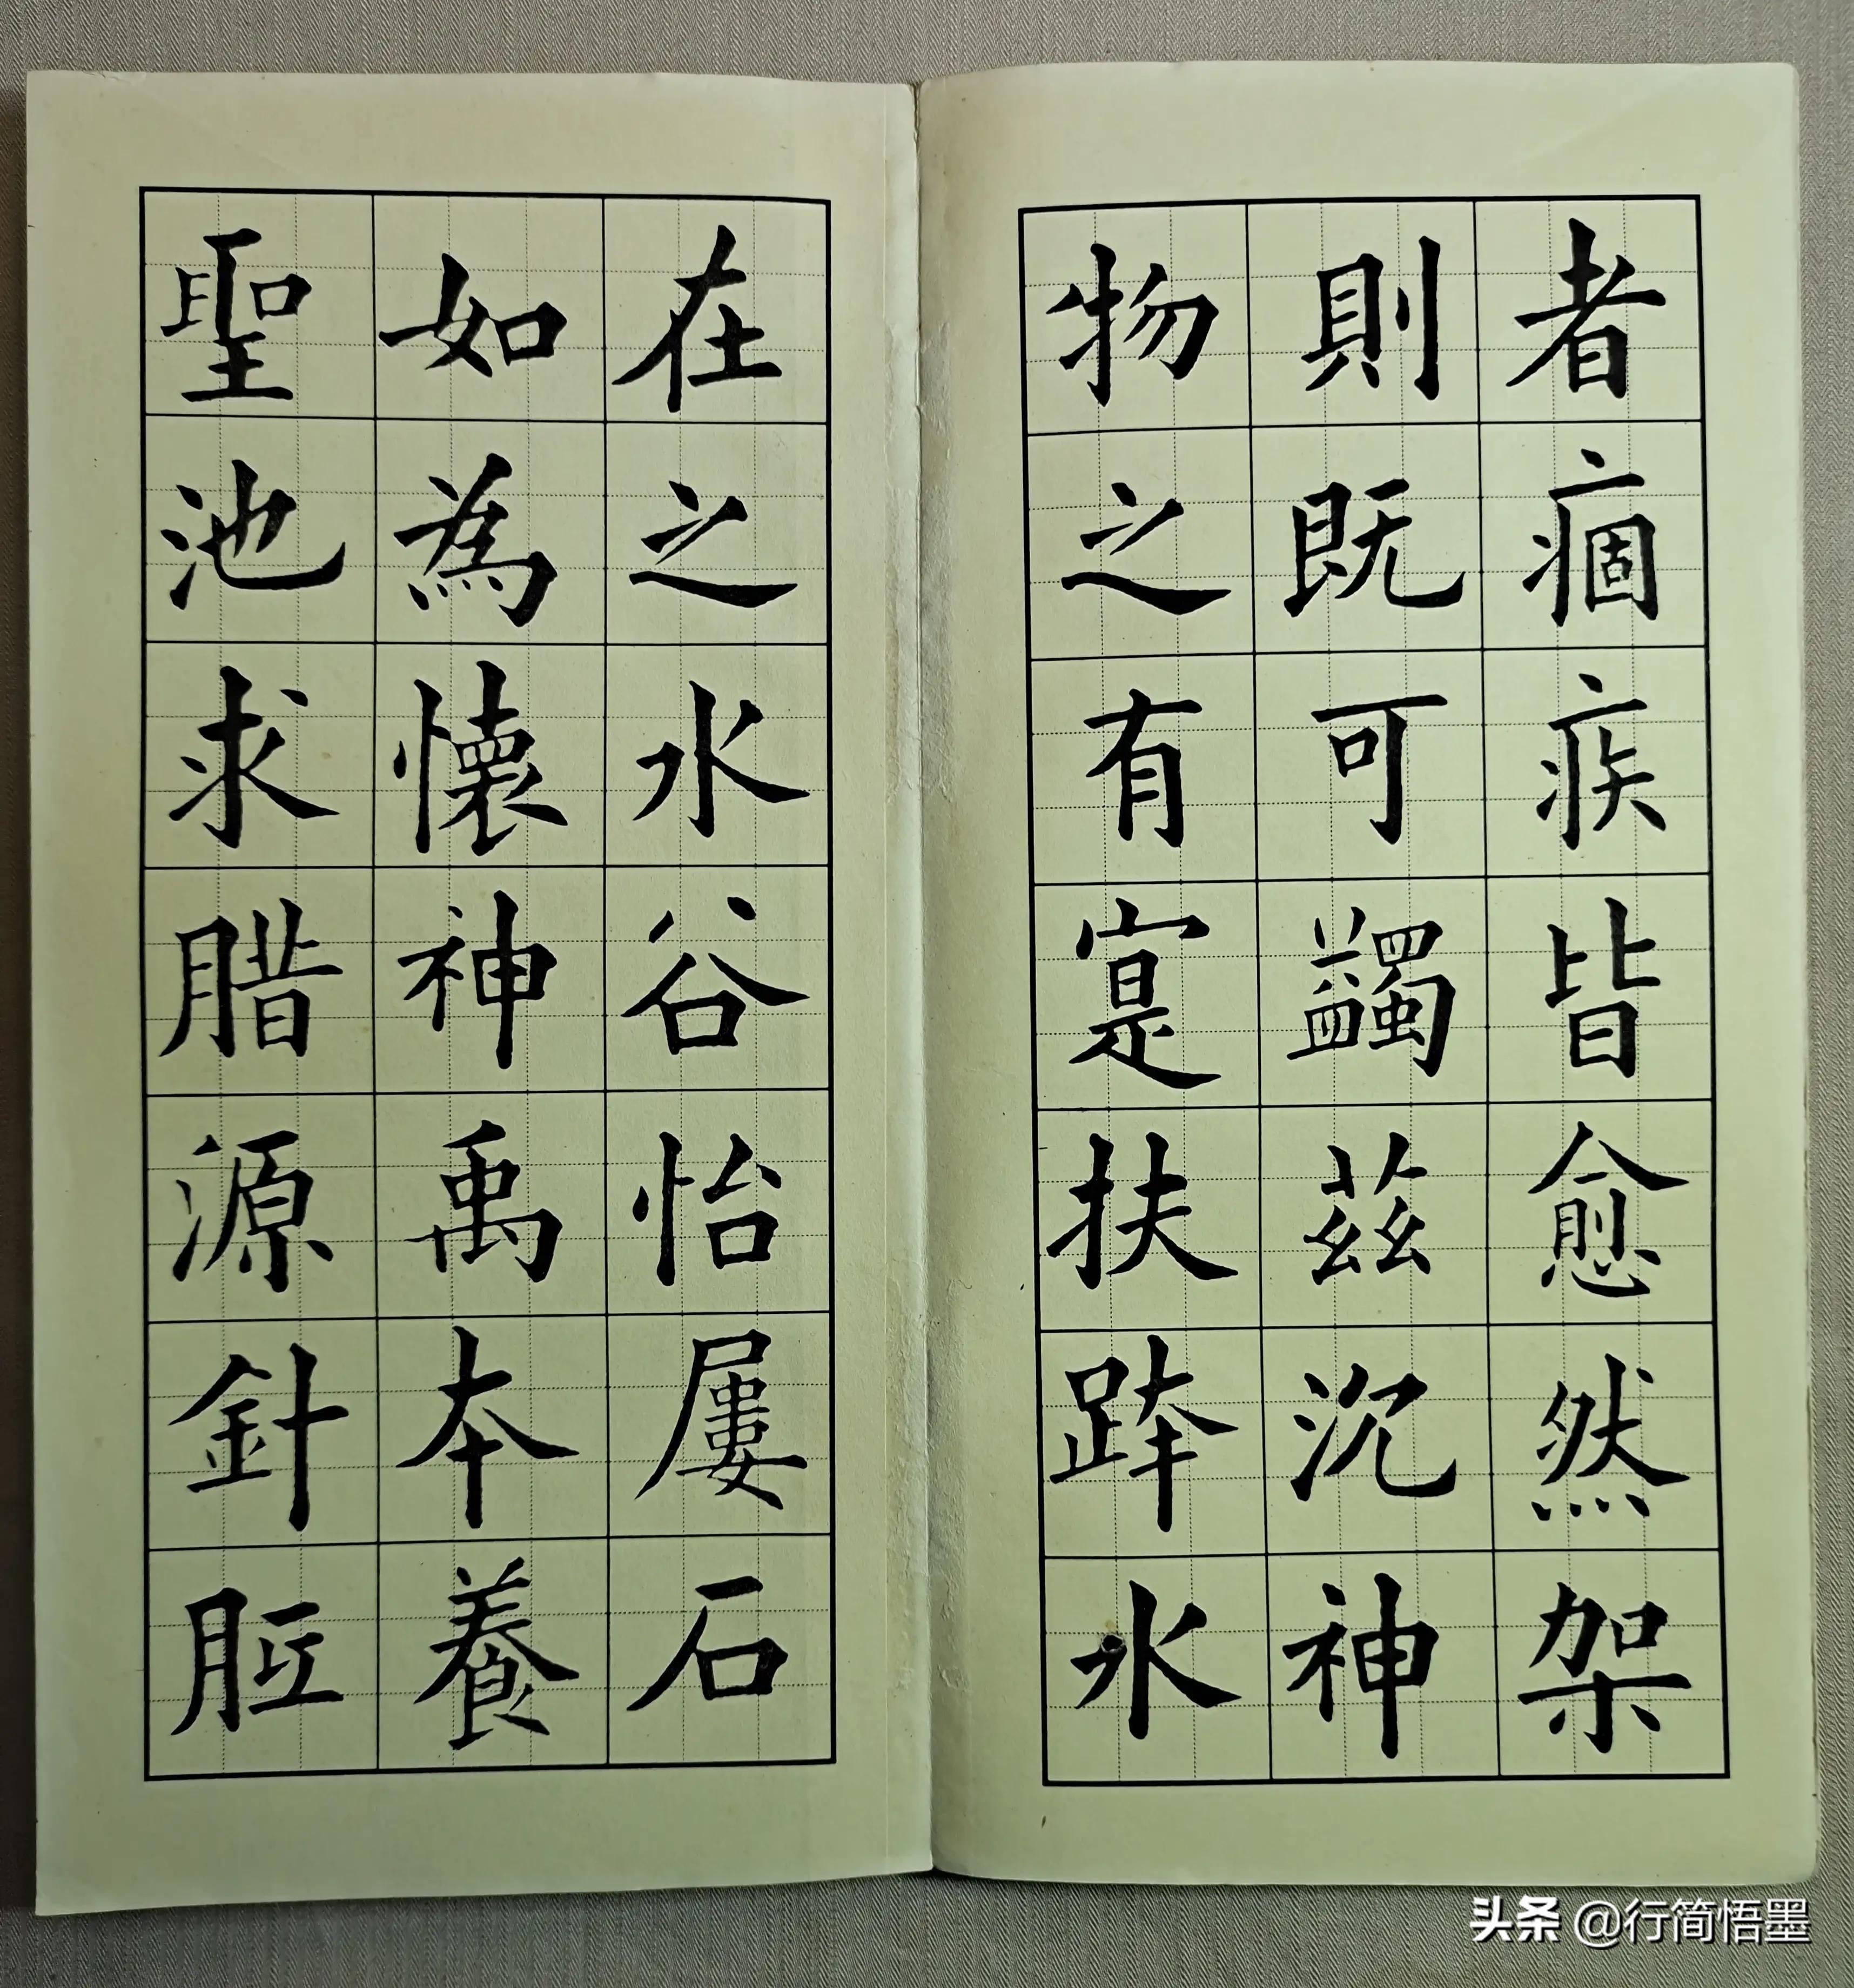 者痼疾皆愈然架
則既可蠲茲沉神
物之有寔扶水
在之水谷怡屢石
如為懷神禹本養
聖池求腊源針
头条 @行简悟墨